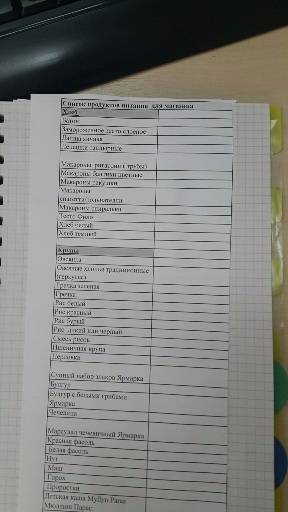 Список продуктов питания для магазина
Хлеб
Замороженное тесто слоеное
Лапша яичная
Лепешки
Макароны ригатони ( трубы)
Макароны бантики цветные
Макароны ракушки
Макароны
Макароны спиральки
Тесто
Хлеб белый
Хлеб темный
Крупы
Овсянка
Овсяные хлопья традиционные
(геркулес)
Гречка зеленая
Гречка
Рис белый
Рис красный
Рис бурый
Рис дикий или черный
Смесь рисов
Пшеничная крупа
Перловка
Супный набор злаков Ярмарка
Булгур
Булгур с белыми грибами
Ярмарка
Чечевица
Марсуал чечевичный Ярмарка
Красная фасоль
Белая фасоль
Нут
Маш
Горох
Проростки
Детская каша Myllyn Paras
Мюллин Парас